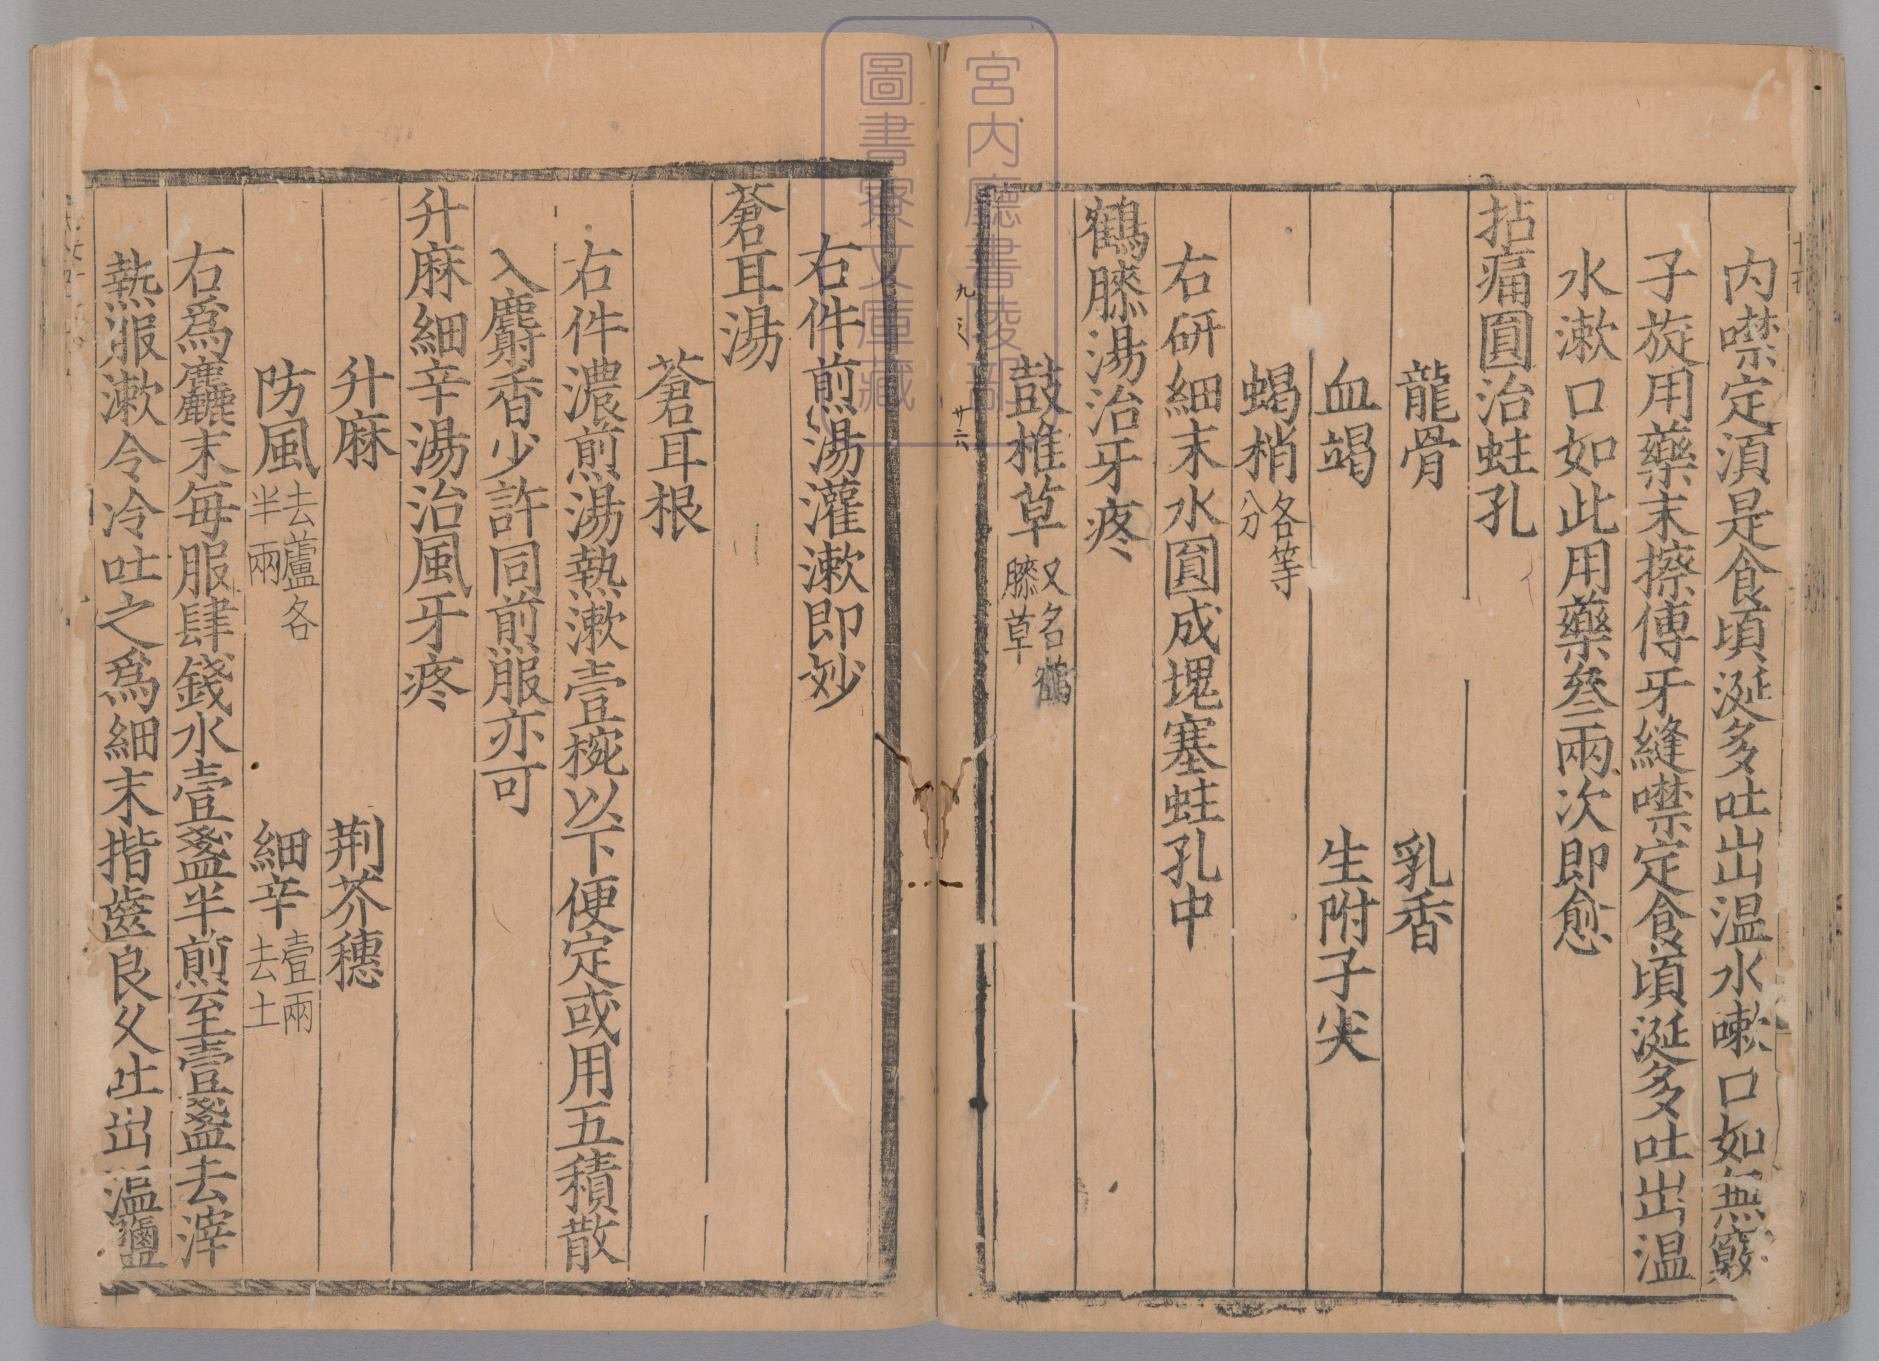 内噤定湏是食頃涎多吐出温水嗽口如無竅
子旋用藥末擦傅牙縫噤定食頃涎多吐出温
水漱口如此用藥叄兩次即愈
拈痛圓治蛀孔
龍骨 乳香
血竭 生附子尖
蝎梢各等分
右研細末水圓成塊塞蛀孔中
鶴膝湯治牙疼
鼓椎草又名鶴膝草
九
廿六
右件煎湯灌漱即妙
蒼耳湯
蒼耳根
右件濃煎湯熱漱壹椀以下便定或用五積散
入麝香少許同煎服亦可
升麻細辛湯治風牙疼
升麻 荆芥穗
防風去蘆各半兩 細辛壹兩去土
右爲麤末每服肆錢水壹盞半煎至壹盞去滓
熱服漱令冷吐之爲細末揩齒良乆吐出温鹽
宮内廳書陵部
圖書寮文庫藏